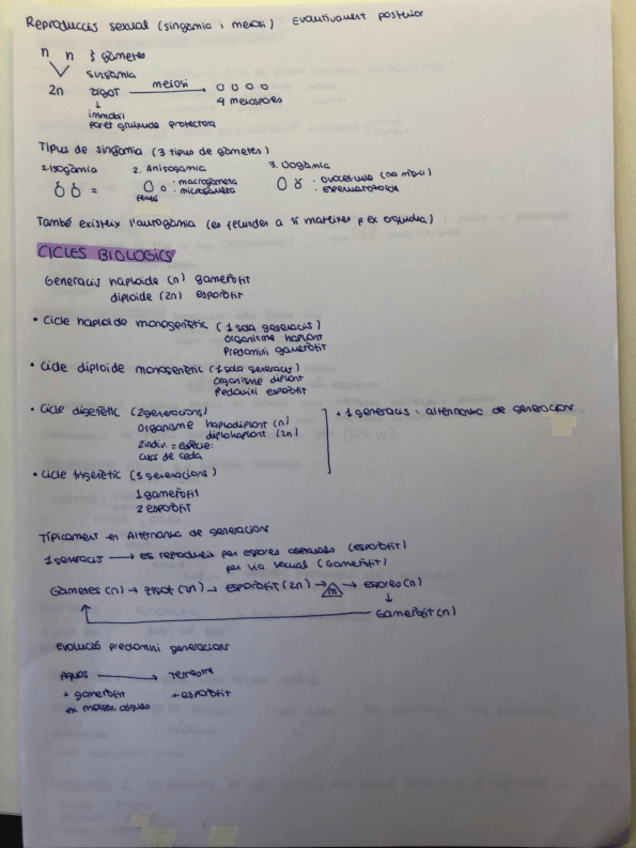 Reproducció sexual (singàmia i meiosi) Evolutivament posterior
n n } gàmetes
singàmia
2n zigot meiosi 4 meiospores
immòbil
paret gruixuda protectora
Tipus de singàmia (3 tipus de gàmetes)
1. isogàmia 2. Anisogamia 3. Oogàmia
= · macrogàmeta · ovocèl·lula (no mòbil)
· microgàmeta · espermatozoide
També existeix l'autogàmia (es fecunden a si mateixes p ex orquídia)
CICLES BIOLOGICS
Generació haploide (n) gametòfit
diploide (2n) esporòfit
• Cicle haploide monogenètic (1 sola generació)
Organisme haplont
Predomini gametòfit
• Cicle diploide monogenètic (1 sola generació)
Organisme diplont
Predomini esporòfit
• Cicle digenètic (2 generacions) + 1 generació : alternança de generacions
Organisme haplodiplont (n)
diplohaplont (2n)
2 indiv. = espècie:
• Cicle trigenètic (3 generacions)
1 gametòfit
2 esporòfit
Típicament en Alternança de generacions
1 generació → es reprodueix per espores asexuals (esporòfit)
per via sexual (Gametòfit)
Gàmetes (n) → zigot (2n) → esporòfit (2n) → m → espores (n)
↓
Gametòfit (n)
Evolució predomini generacions
Aquós → Terrestre
+ gametòfit + esporòfit
ex moltes algues